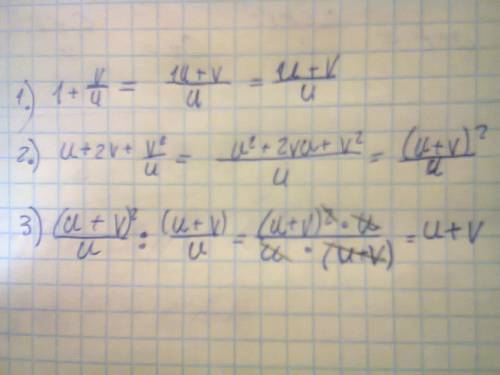 1.) 1 + v/u = 1u+v/u = u+v/u
2.) u+2v+ v²/u = u²+2vu+v²/u = (u+v)²/u
3) (u+v)²/u : (u+v)/u = (u+v)²·u/u·(u+v) = u+v